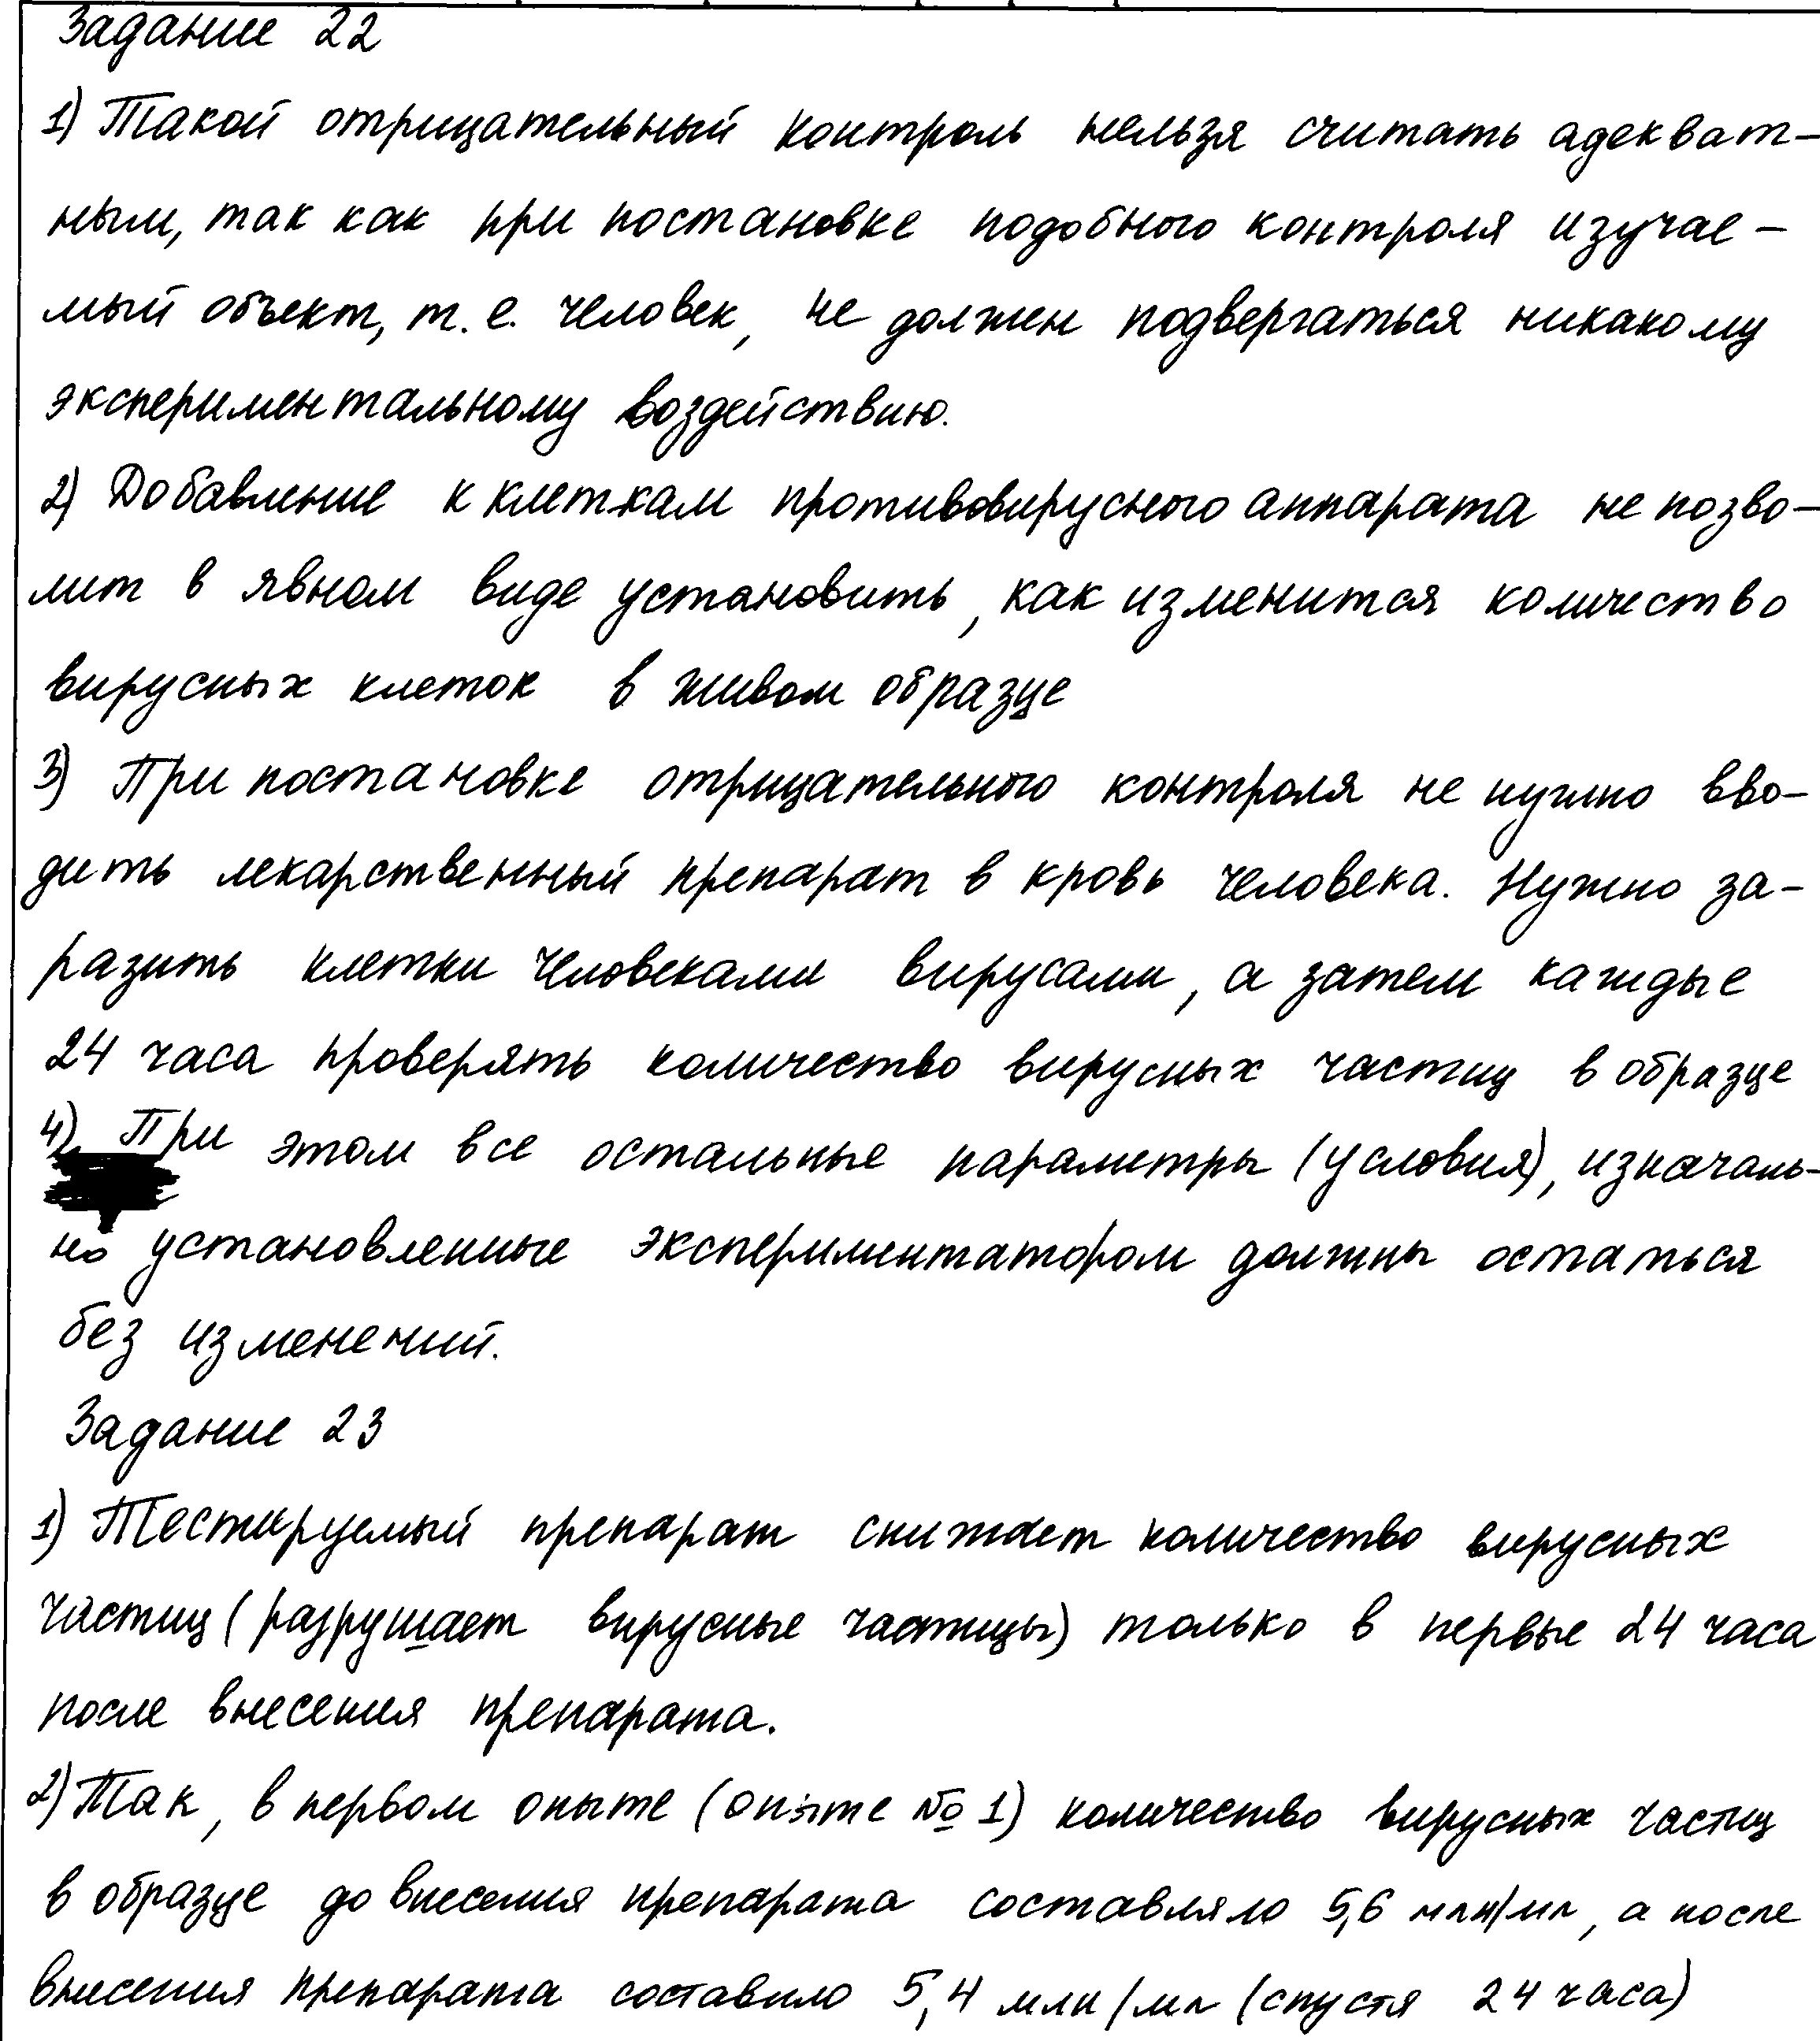 Задание 22
1) Такой отрицательный контроль нельзя считать адекват-
ным, так как при постановке подобного контроля изучае-
мый объект, т. е. человек, не должен подвергаться никакому
экспериментальному воздействию.
2) Добавление к клеткам противовирусного аппарата не позво-
лит в явном виде установить, как изменится количество
вирусных клеток в живом образце
3) При постановке отрицательного контроля не нужно вво-
дить лекарственный препарат в кровь человека. Нужно за-
разить клетки человеками вирусами, а затем каждые
24 часа проверять количество вирусных частиц в образце
4) При этом все остальные параметры (условия), изначаль-
но установленные экспериментатором должны остаться
без изменений.
Задание 23
1) Тестируемый препарат снижает количество вирусных
частиц (разрушает вирусные частицы) только в первые 24 часа
после внесения препарата.
2) Так, в первом опыте (опыте № 1) количество вирусных частиц
в образце до внесения препарата составляло 5,6 млн/мл, а после
внесения препарата составило 5,4 млн/мл (спустя 24 часа)